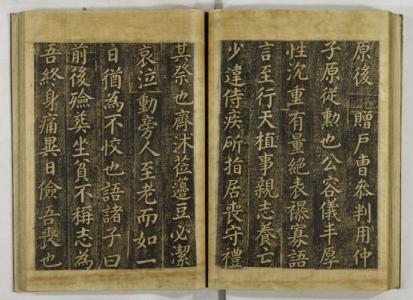 原後 贈戶曹叅判用仲
子原從勳也公容儀丰厚
性沉重有量絶表襮寡語
言至行天植事親志養亡
少違侍疾所指居喪守禮
其祭也齊沐莅籩豆必潔
哀泣動旁人至老而如一
日猶為不恔也語諸子曰
前後殮葬坐貧不稱志為
吾終身痛異日儉吾喪也